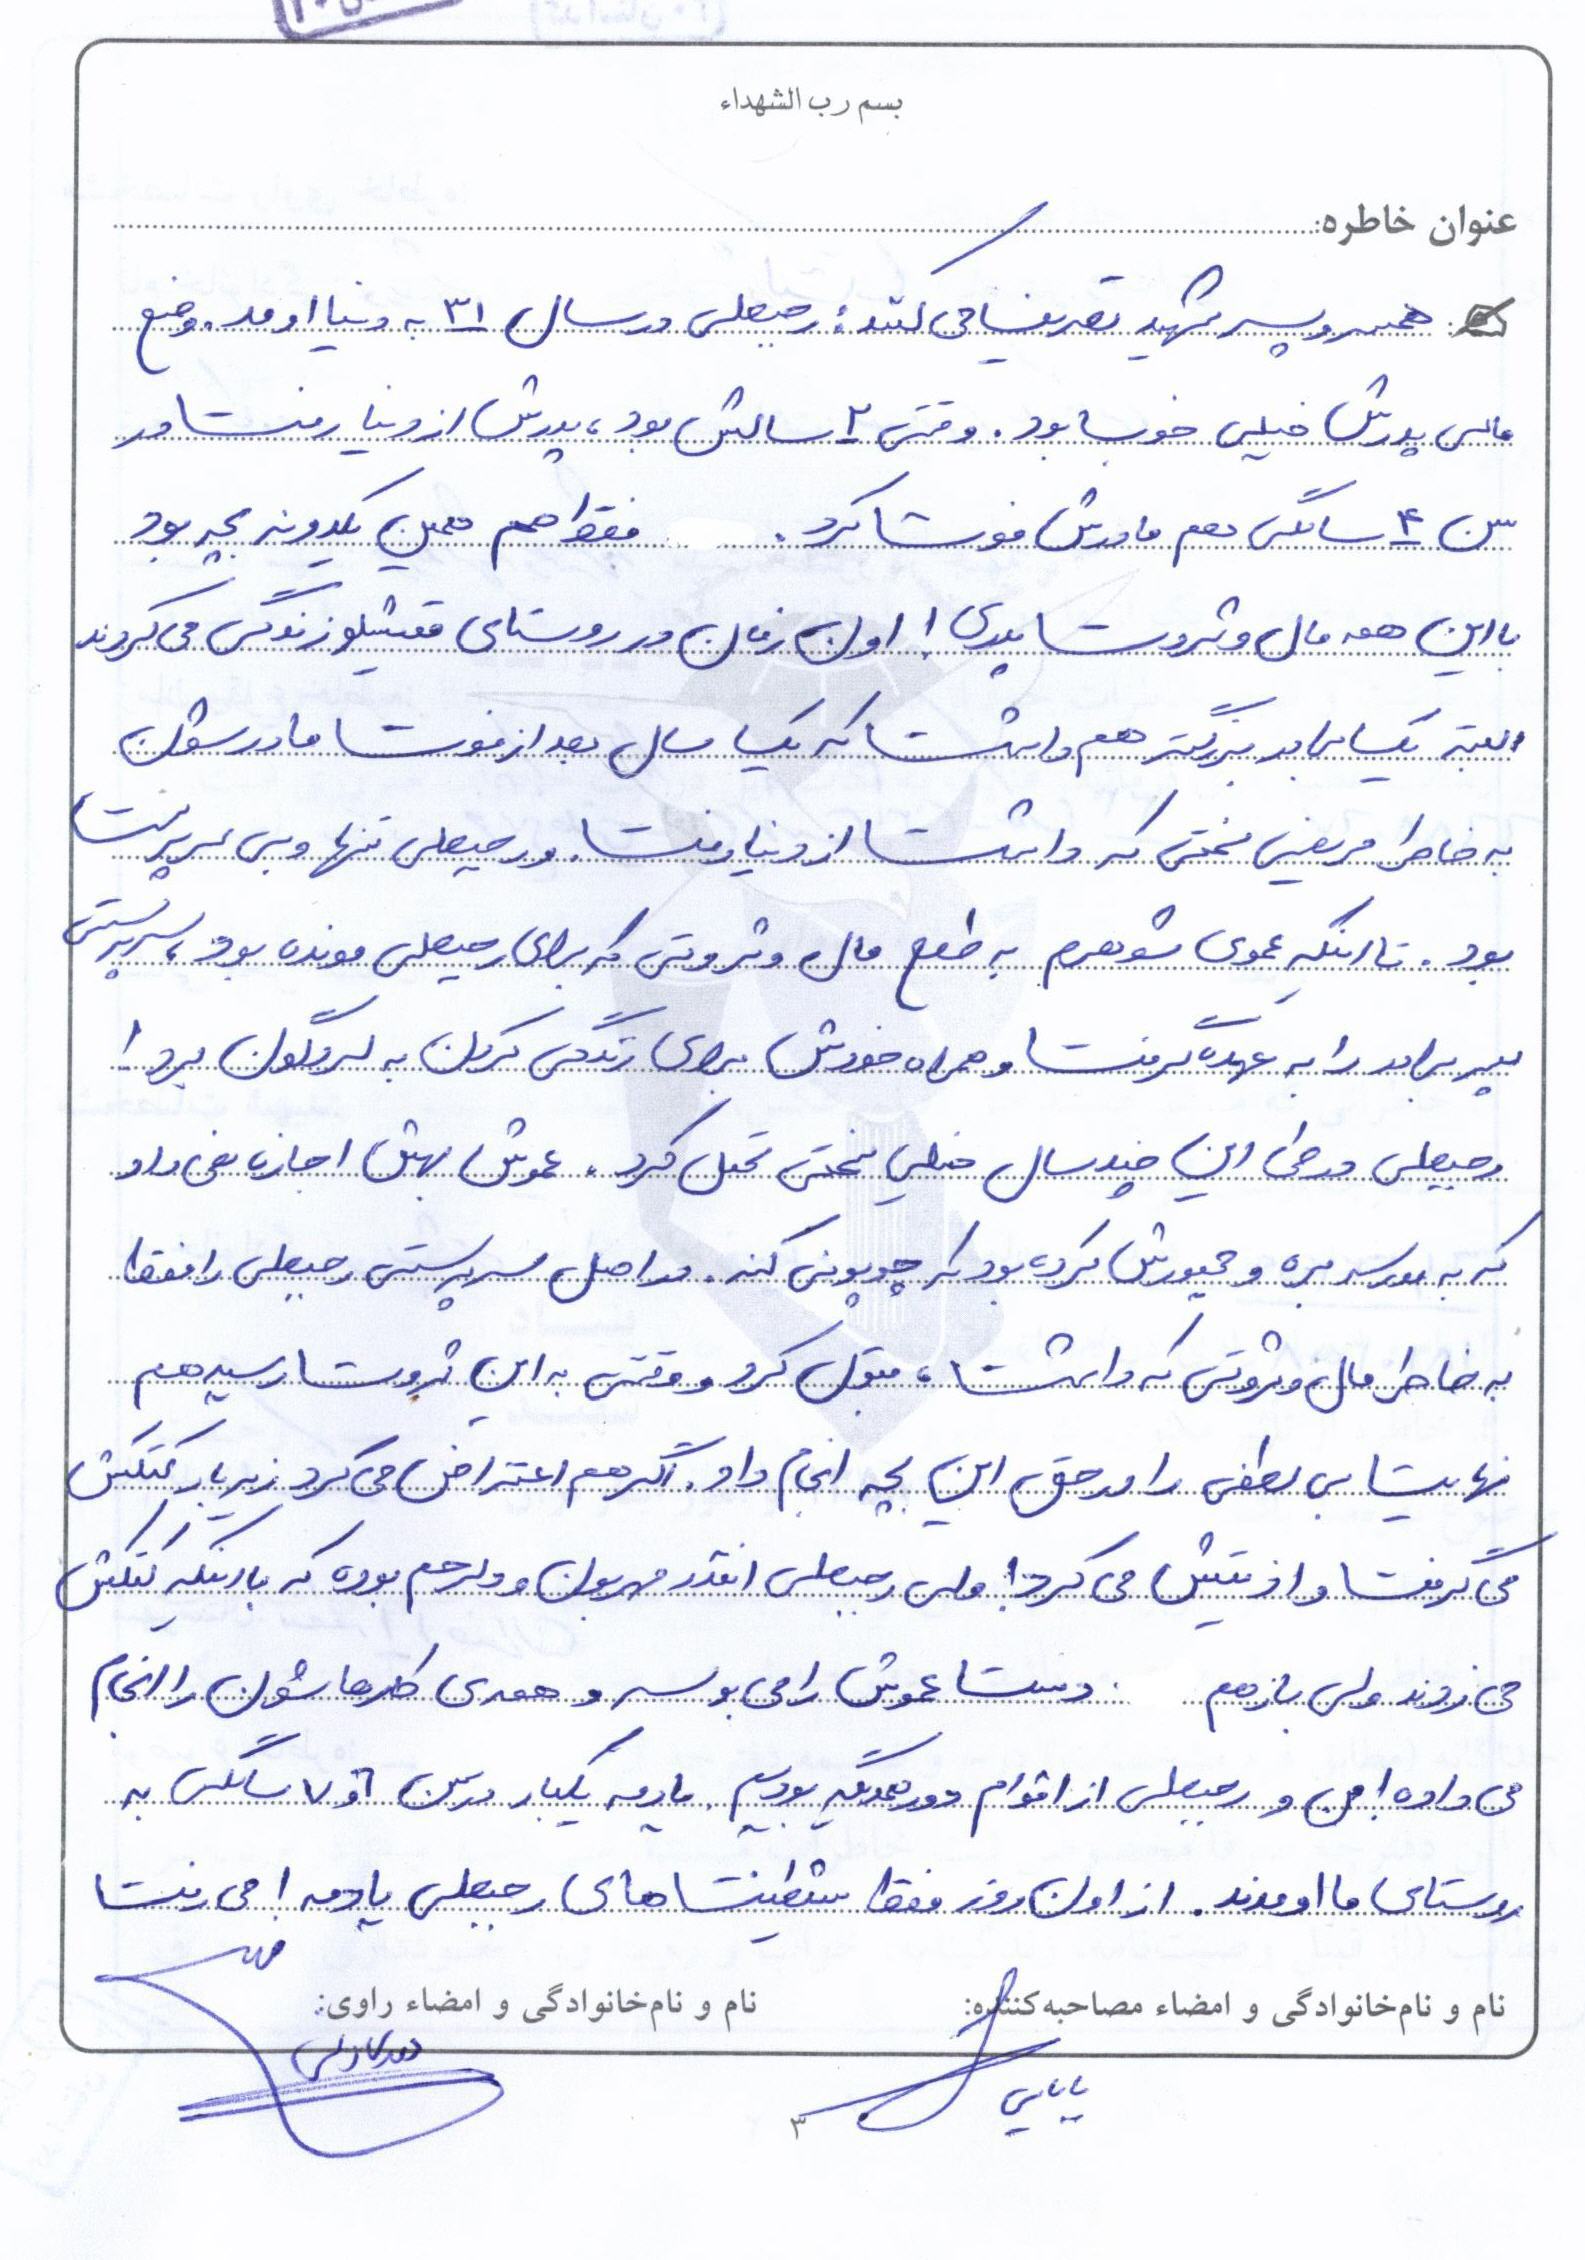 بسم رب الشهداء
عنوان خاطره:
همسر و پسر شهید تعریف می کنند: رجبعلی در سال ۳۱ به دنیا اومد. وضع
مالی پدرش خیلی خوب بود. وقتی ۲ سالش بود، پدرش از دنیا رفت و در
سن ۴ سالگی هم مادرش فوت کرد. فقط هم همین یکدونه بچه بود
با این همه مال و ثروت پدری! اول زمان در روستای زندگی می کردند
البته یک برادر بزرگتر هم داشت که یک سال بعد از فوت مادرشون
به خاطر مریضی سختی که داشت از دنیا رفت. و رجبعلی تنها و بی سرپرست
بود. تا اینکه عموی شوهرم به طمع مال و ثروتی که برای رجبعلی مونده بود، سرپرستی
پسر برادر را به عهده گرفت و همراه خودش برای زندگی کردن به لردگون برد!
رجبعلی در طی این چند سال خیلی سختی تحمل کرد. عموش بهش اجازه نمی داد
که به مدرسه بره و مجبورش کرده بود که چوپونی کنه. در اصل سرپرستی رجبعلی را فقط
به خاطر مال و ثروتی که داشت، قبول کرد و وقتی به این ثروت رسید هم
نهایت بی لطفی را در حق این بچه انجام داد. اگر هم اعتراض می کرد زیر بار کتکش
می گرفت و اذیتش می کرد! ولی رجبعلی انقدر مهربون و دلرحم بوده که با اینکه کتکش
می زدند ولی باز هم دست عموش را می بوسد و همه ی کارهاشون را انجام
می داده! من و رجبعلی از اقوام دور همدیگه بودیم. یادمه یکبار در سن ۶ و ۷ سالگی به
روستای ما اومدند. از اون روز فقط شیطنت های رجبعلی یادمه! می رفت
نام و نام خانوادگی و امضاء مصاحبه کننده:
نام و نام خانوادگی و امضاء راوی:
بابایی
۳